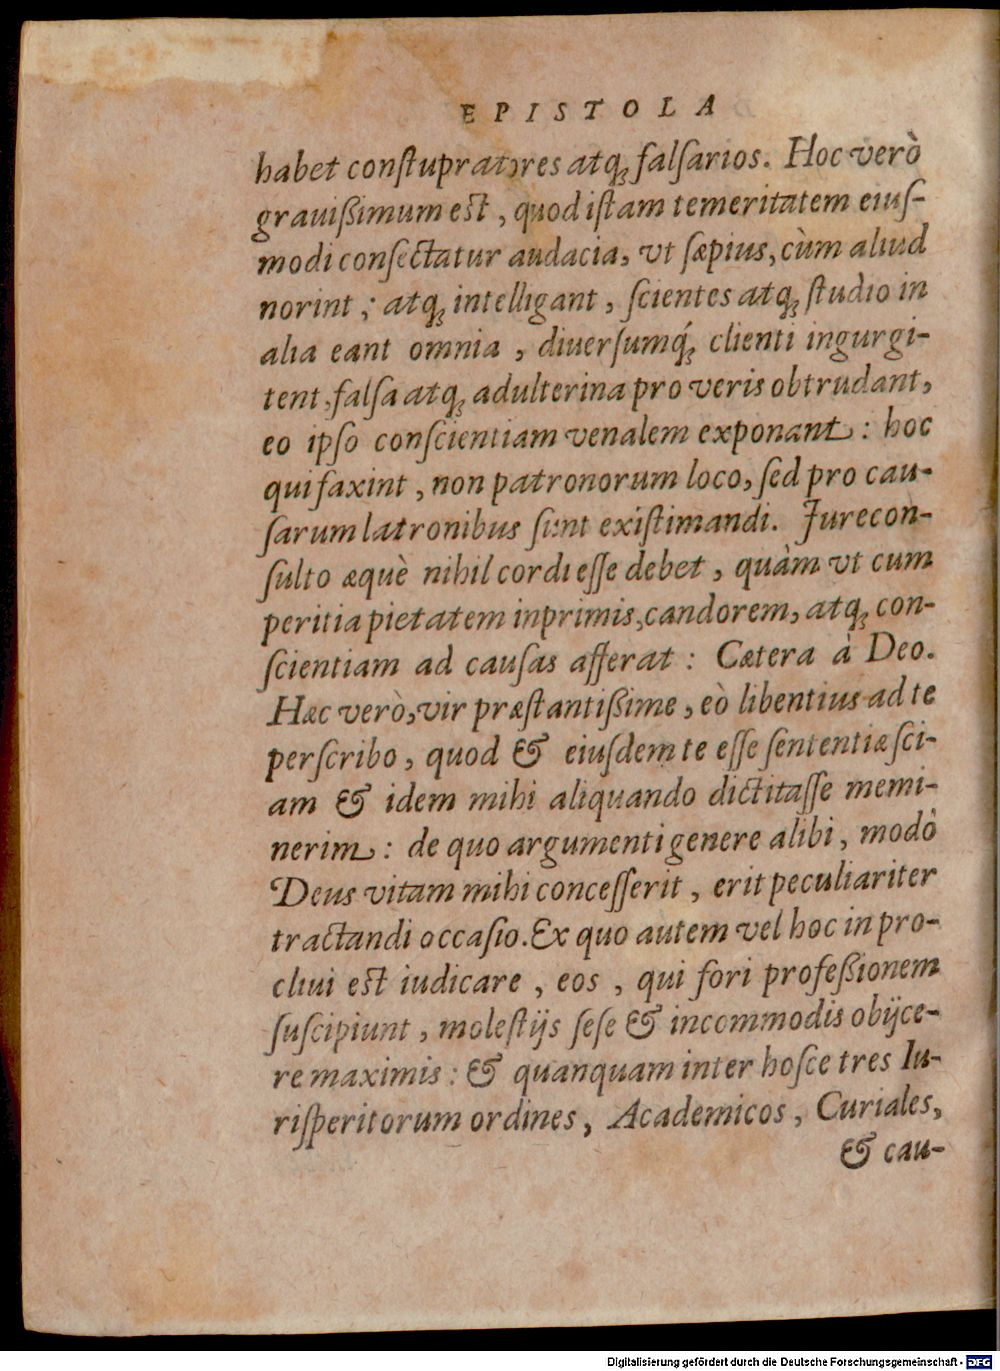 EPISTOLA
habet conſtupratores atq; falſarios. Hoc verò
grauißimum est, quod iſtam temeritatem eiuſ-
modi conſectatur audacia, vt ſæpius, cùm aliud
norint; atq; intelligant, ſcientes atq; ſtudio in
alia eant omnia, diuerſumq́; clienti ingurgi-
tent, falſa atq; adulterina pro veris obtrudant,
eo ipſo conſcientiam venalem exponant: hoc
qui faxint, non patronorum loco, ſed pro cau-
ſarum latronibus ſunt exiſtimandi. Jurecon-
ſulto æquè nihil cordi eſſe debet, quàm vt cum
peritia pietatem inprimis, candorem, atq; con-
ſcientiam ad cauſas afferat: Cætera à Deo.
Hæc verò, vir præſtantißime, eò libentius ad te
perſcribo, quod & eiuſdem te eſſe ſententiæ ſci-
am & idem mihi aliquando dictitaſſe memi-
nerim: de quo argumenti genere alibi, modò
Deus vitam mihi conceſſerit, erit peculiariter
tractandi occaſio. Ex quo autem vel hoc in pro-
cliui est iudicare, eos, qui fori profeßionem
ſuſcipiunt, moleſtijs ſeſe & incommodis obijce-
re maximis: & quanquam inter hoſce tres Iu-
riſperitorum ordines, Academicos, Curiales,
& cau-
Digitalisierung gefördert durch die Deutsche Forschungsgemeinschaft - DFG